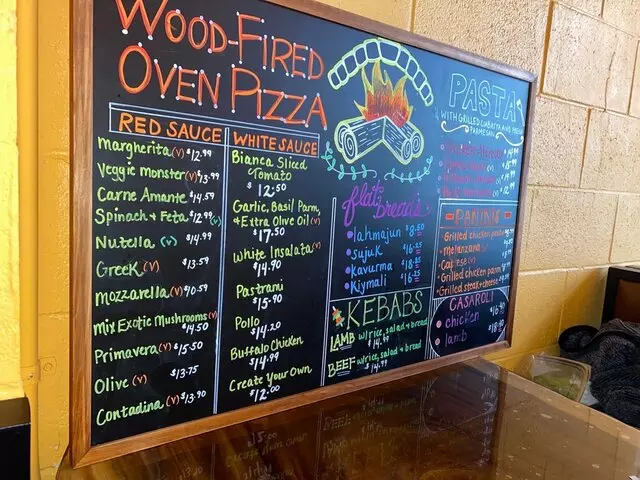 WOOD-FIRED
OVEN PIZZA
RED SAUCE
Margherita (v) $12.99
Veggie monster (v) $13.99
Carne Amante $14.59
Spinach + Feta $12.99 (v)
Nutella (v) $14.99
Greek (v) $13.59
Mozzarella (v) $10.59
Mix Exotic Mushrooms (v)
$14.50
Primavera (v) $15.50
Olive (v) $13.75
Contadina (v) $13.90
WHITE SAUCE
Bianca Sliced
Tomato
$12.50
Garlic, Basil Parm,
& Extra Olive Oil (v)
$17.50
White Insalata (v)
$14.90
Pastrani
$15.90
Pollo
$14.20
Buffalo Chicken
$14.99
Create Your Own
$12.00
flat
bread's
lahmajun $8.50
sujuk $16.25
kavurma $18.25
Kiymali $16.25
KEBABS
LAMB w/rice, salad & bread
$14.99
BEEF w/rice, salad & bread
$14.99
PASTA
WITH GRILLED CIABATTA AND FRESH
PARMESAN
PANINIS
Grilled chicken pesto
Melanzana
Caprese (v)
Grilled chicken parm
Grilled steak + cheese
CASAROLI
chicken $16.40
lamb $18.40